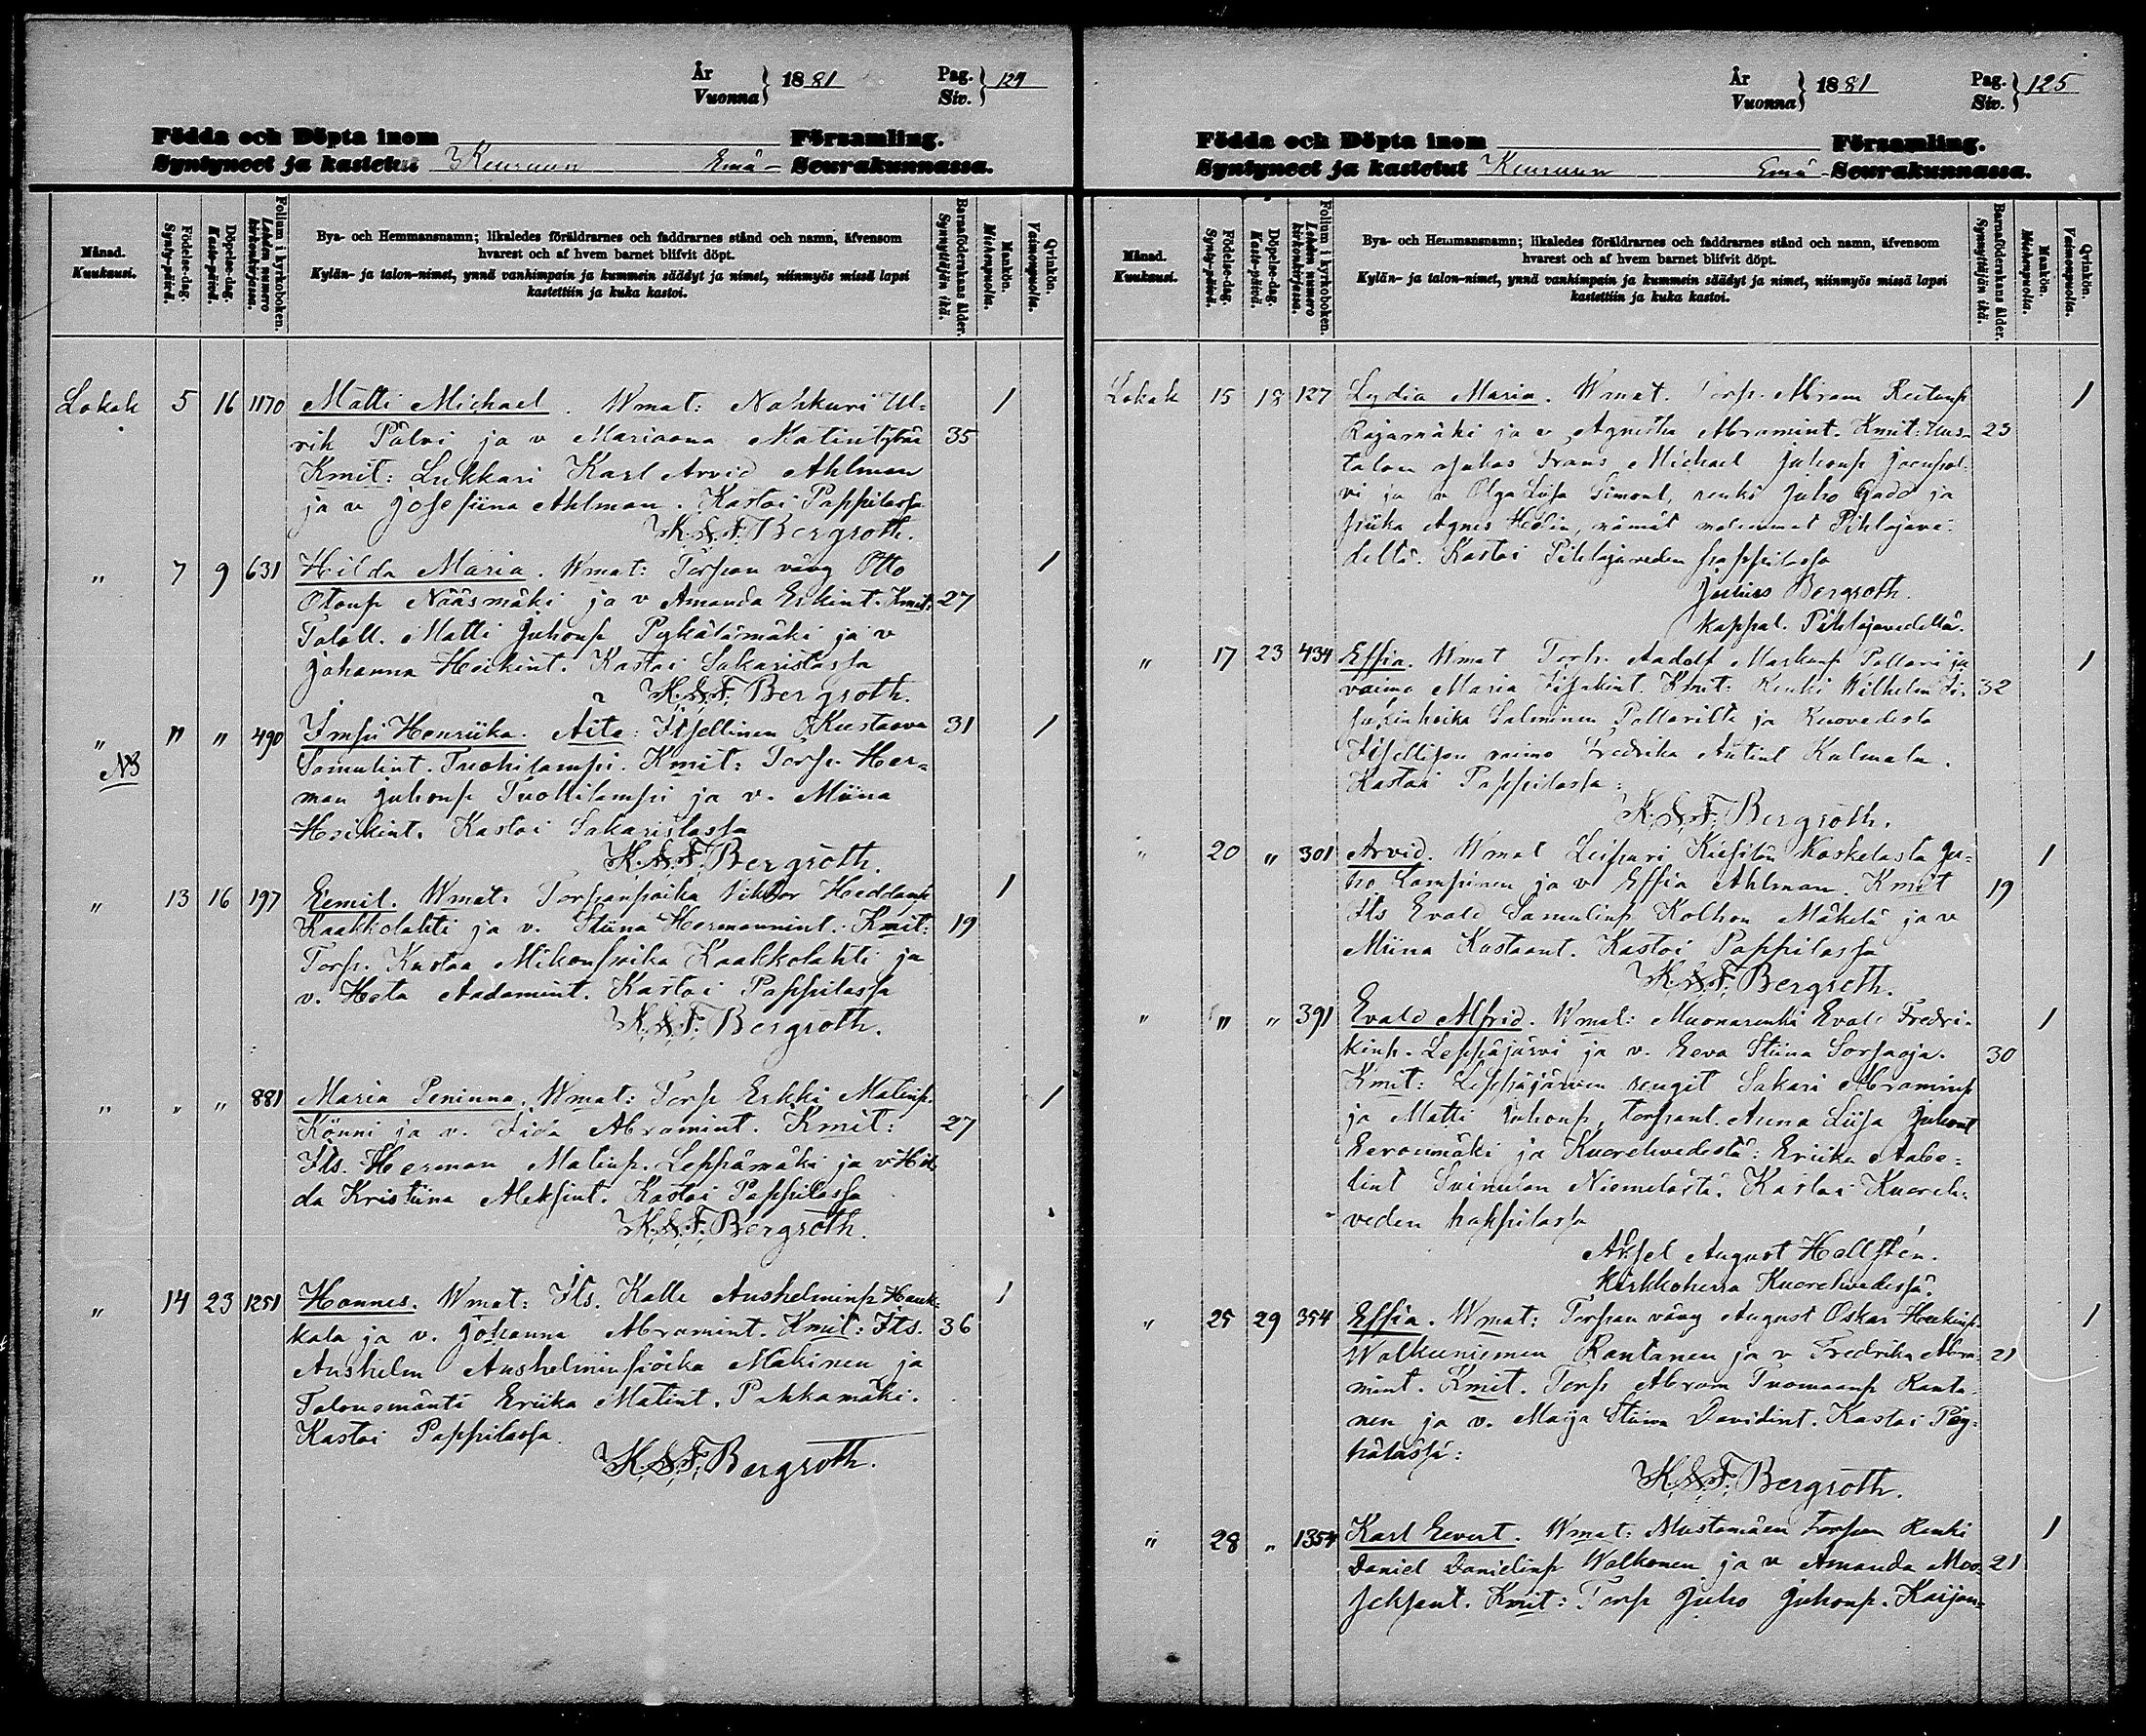 År
Vuonna } 1881 Pag.
Siv. } 124
Födda och Döpta inom Församling.
Syntyneet ja kastetut Keuruun Emä- Seurakunnassa.
Månad.
Kuukausi.
Födelse-dag.
Synty-päivä.
Döpelse-dag.
Kaste-päivä.
Folium i kyrkoboken.
Lehden numero
kirkonkirjassa.
Bya- och Hemmansnamn; likaledes föräldrarnes och faddrarnes stånd och namn, äfvensom
hvarest och af hvem barnet blifvit döpt.
Kylän- ja talon-nimet, ynnä vanhimpain ja kummein säädyt ja nimet, niinmyös missä lapsi
kastettiin ja kuka kastoi.
Barnaföderskans ålder.
Synnyttäjän ikä.
Mankön.
Miehenpuolia.
Qvinkön.
Vaimonpuolia.
Lokak 5 16 1170 Matti Michael. Wmat: Nahkuri Ul- 1
rik Pälvi ja v Mariaana Matintytär 35
Kmit: Lukkari Karl Arvid Ahlman
ja v Josefiina Ahlman. Kastoi Pappilassa
K. S. F. Bergroth.
" 7 9 631 Hilda Maria. Wmat: Torpan väug Otto 1
Otonp Nääsmäki ja v Amanda Erkint. Kmit: 27
Taloll. Matti Juhonp Pykälämäki ja v
Johanna Heikint. Kastoi Sakaristassa
K. S. F. Bergroth.
" " " 490 Impi Henriika. Äite: Itsellinen Kustaava 31 1
NB Samulint. Tuohilampi. Kmit: Torp. Her-
man Juhonp Tuohilampi ja v. Miina
Heikint. Kastoi Sakaristassa
K. S. F. Bergroth.
" 13 16 197 Eemil. Wmat. Torpanpoika Viktor 1
Kaakkolahti ja v. Stiina Hermannint. Kmit: 19
Torp. Kustaa Mikonpoika Kaakkolahti ja
v. Heta Aadamint. Kastoi Pappilassa
K. S. F. Bergroth.
" " " 881 Maria Peninna. Wmat: Torp Erkki Matinp. 1
Könni ja v. Fida Abramint. Kmit: 27
Its. Herman Matinp. Leppämäki ja v Hil
da Kristiina Aleksint. Kastoi Pappilassa
K. S. F. Bergroth.
" 14 23 1251 Hannes. Wmat: Its. Kalle Anshelminp Hauk- 1
kala ja v. Johanna Abramint. Kmit: Its. 36
Anshelm Anshelminpoika Mäkinen ja
Talonemäntä Eriika Matint. Pihkamäki.
Kastoi Pappilassa.
K. S. F. Bergroth.
År
Vuonna } 1881 Pag.
Siv. } 125
Födda och Döpta inom Församling.
Syntyneet ja kastetut Keuruun Emä- Seurakunnassa.
Månad.
Kuukausi.
Födelse-dag.
Synty-päivä.
Döpelse-dag.
Kaste-päivä.
Folium i kyrkoboken.
Lehden numero
kirkonkirjassa.
Bya- och Hemmansnamn; likaledes föräldrarnes och faddrarnes stånd och namn, äfvensom
hvarest och af hvem barnet blifvit döpt.
Kylän- ja talon-nimet, ynnä vanhimpain ja kummein säädyt ja nimet, niinmyös missä lapsi
kastettiin ja kuka kastoi.
Barnaföderskans ålder.
Synnyttäjän ikä.
Mankön.
Miehenpuolia.
Qvinkön.
Vaimonpuolia.
Lokak 15 18 127 Lydia Maria. Wmat. Torp. Abram 1
Rajamäki ja v Agnetha Abramint. Kmit: Uus- 23
talon Frans Michael Juhonp
vi ja v Olga Liisa Simont, renki Juho Gadd ja
piika Agnes Hedin, nämät molemmat Pihlajave-
deltä. Kastoi Pihlajaveden pappilassa
Julius Bergroth.
kappal. Pihlajavedellä.
" 17 23 434 Effia. Wmat Torp. Aadolf Markunp Pollari ja 1
vaimo Maria Iisakint. Kmit: Renki Wilhelm Ii- 32
sakinpoika Salminen Pollarilta ja Kuorevedestä
Itsellisen vaimo Fredrika Antint Kulmala.
Kastoi Pappilassa:
K. S. F. Bergroth.
" 20 " 301 Arvid. Wmat Leipuri Kiesilän Koskelasta Ju- 1
ho Lampinen ja v Effia Ahlman. Kmit 19
Its Evald Samulinp Kolhon Mäkelä ja v
Miina Kustaant. Kastoi Pappilassa
K. S. F. Bergroth.
" " " 391 Evald Alfrid. Wmat: Muonarenki Evald Fredri- 1
kinp. Leppäjärvi ja v. Eeva Stiina Sorpaoja. 30
Kmit: Leppäjärven rengit Sakari Abraminp
ja Matti Juhonp, torpant. Anna Liisa Juhont
Eeronmäki ja Kuorehvedestä: Eriika Aabe-
lint Suinulan Niemelästä. Kastoi Kuoreh-
veden pappilassa
Aksel August Hellstén.
Kirkkoherra Kuorehvedessä.
" 25 29 354 Effia. Wmat: Torpan väug August Oskar Heikinp. 1
Walkeeniemen Rantanen ja v Fredrika Abra- 21
mint. Kmit. Torp Abram Tuomaanp Ranta-
nen ja v. Maija Stiina Davidint. Kastoi Pöy-
hölässä:
K. S. F. Bergroth.
" 28 " 1354 Karl Eevert. Wmat: Mustamäen torpan Renki 1
Daniel Danielinp Walkonen ja v Amanda Moo- 21
seksent. Kmit: Torp Juho Juhonp. Kaijan-